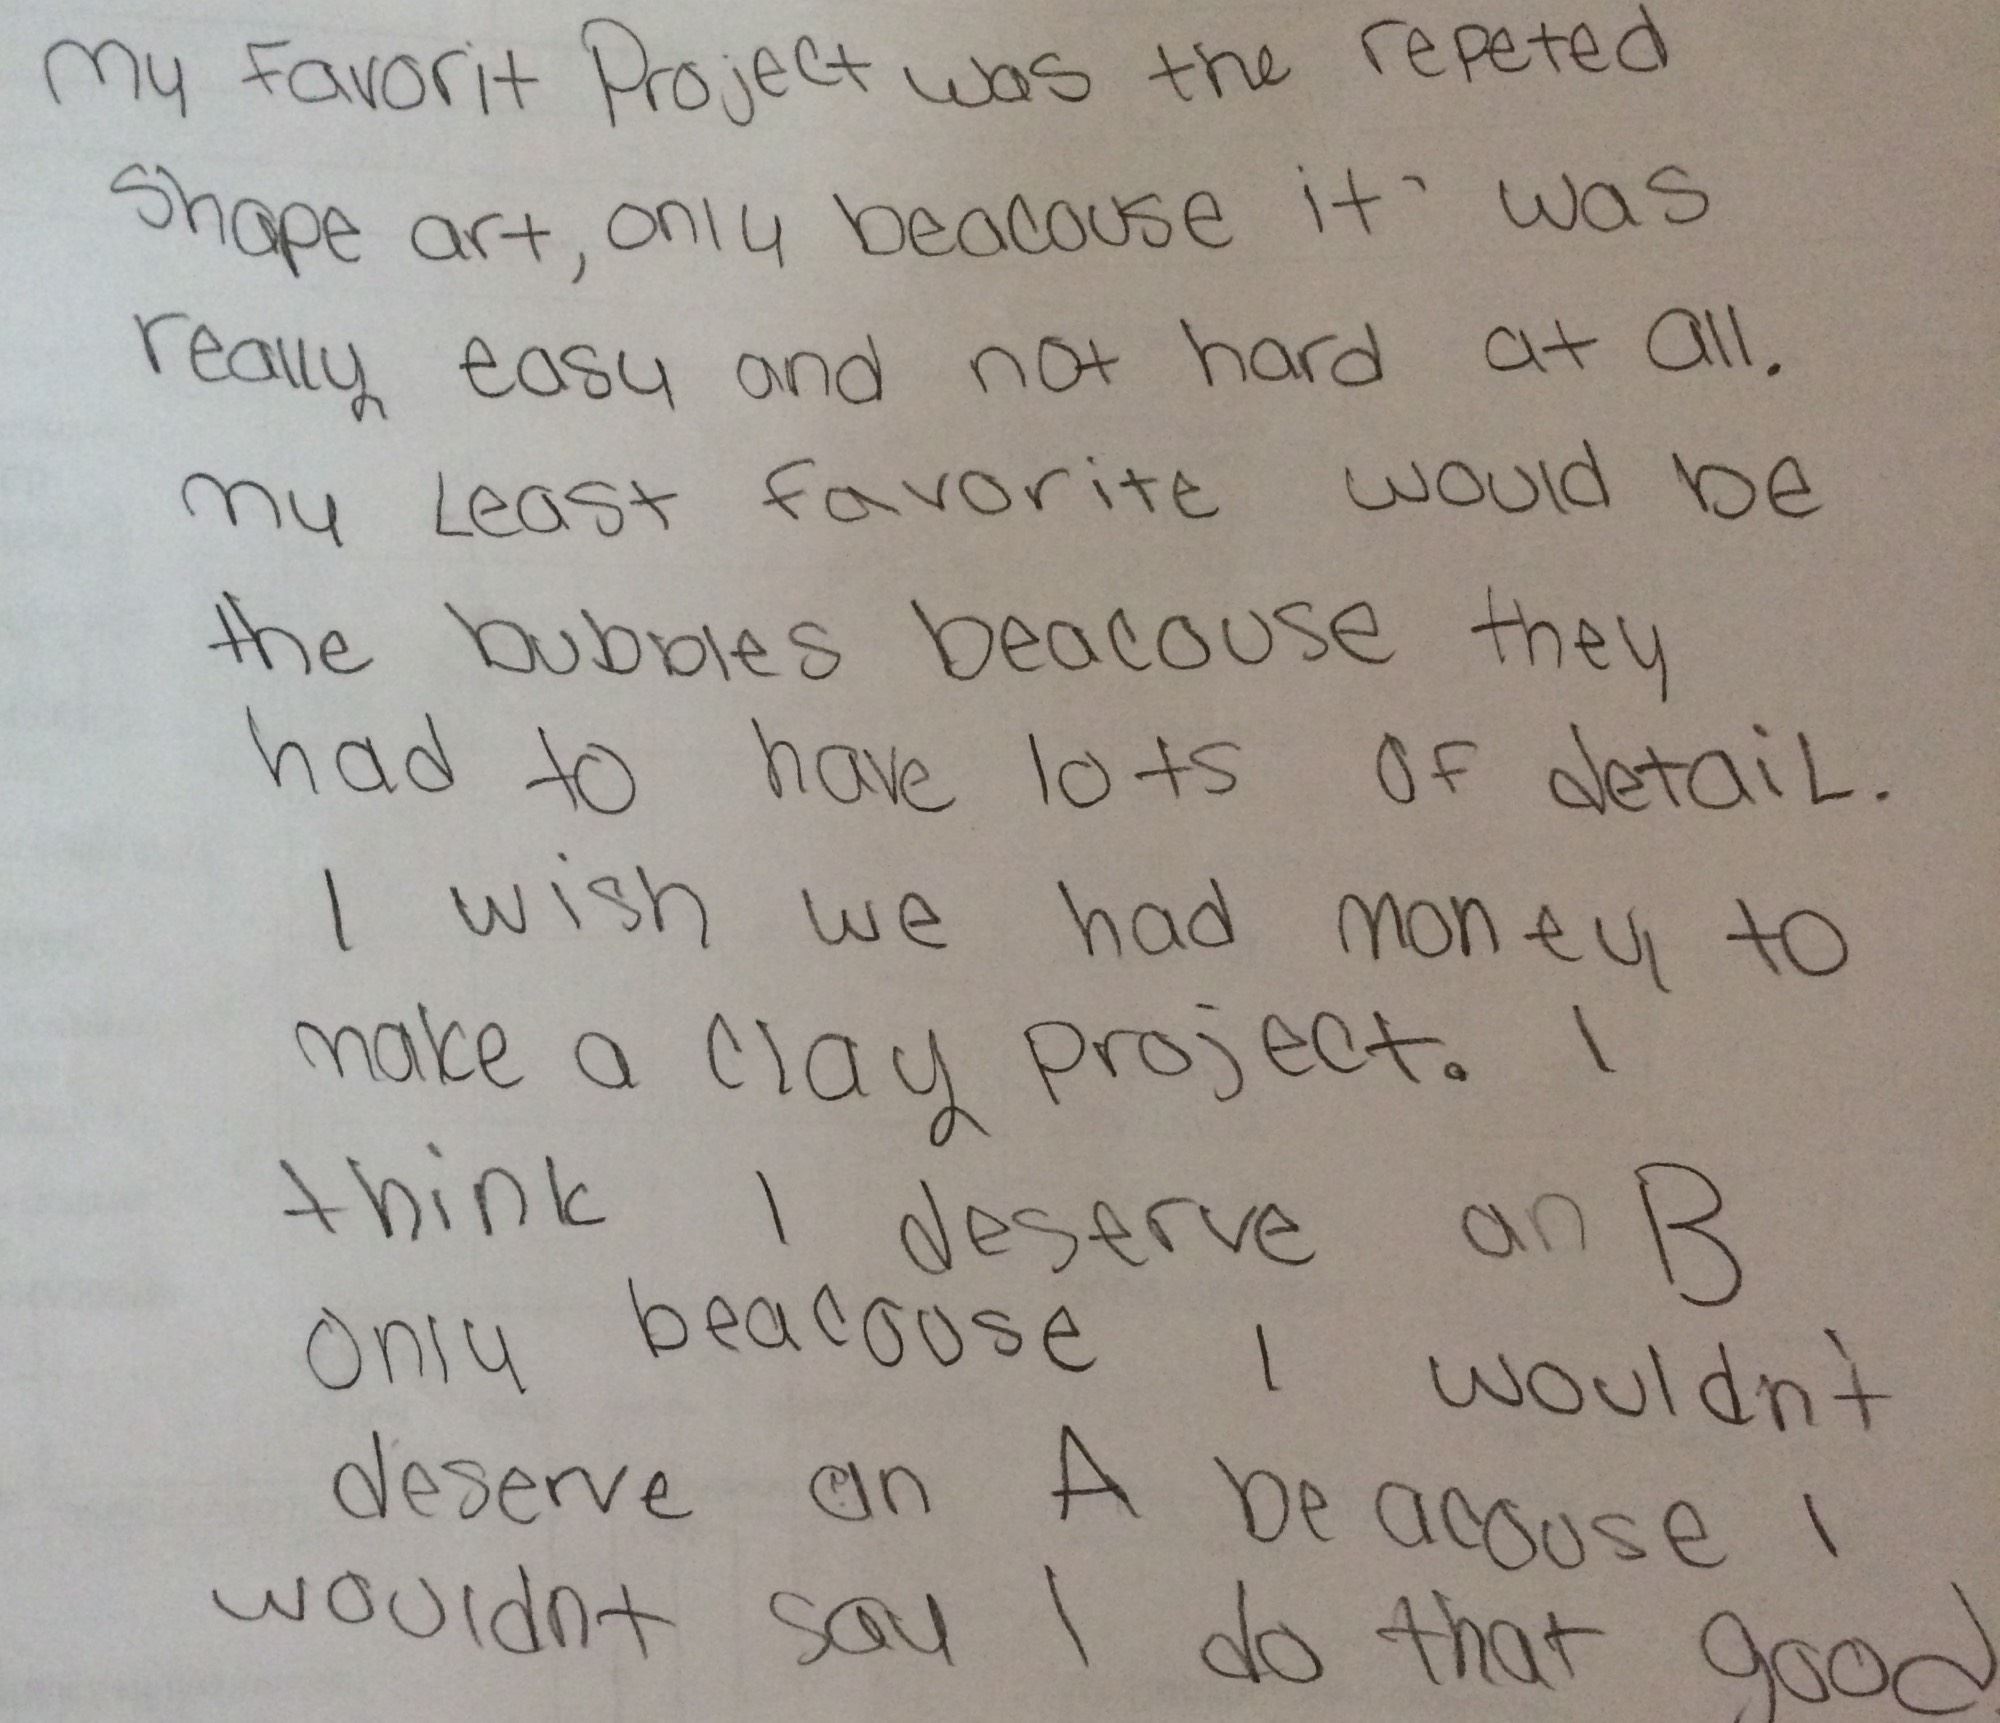 My Favorit Project was the repeted
shape art, only beacouse it was
really easy and not hard at all.
my Least favorite would be
the bubbles beacouse they
had to have lots of detail.
I wish we had money to
make a clay project. I
think I deserve an B
only beacouse I wouldnt
deserve an A beacouse I
wouldnt say I do that good.